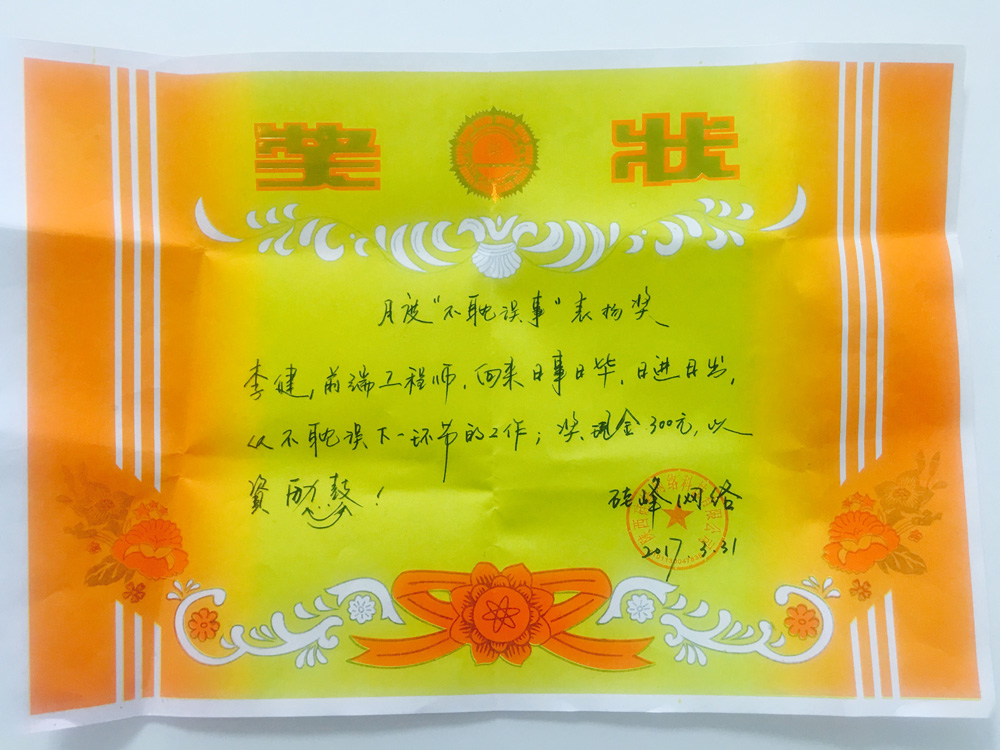 奖状
月度“不耽误事”表扬奖
李健,前端工程师,向来日事日毕,日进日出,
从不耽误下一环节的工作;奖现金300元,以
资励鼓!
硅峰网络
2017.3.31